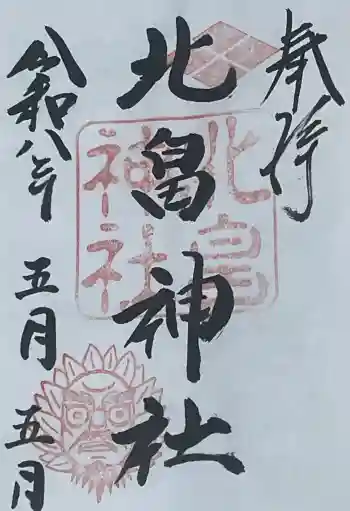 奉拝
北畠神社
北畠
神社
令和八年
五月
五日